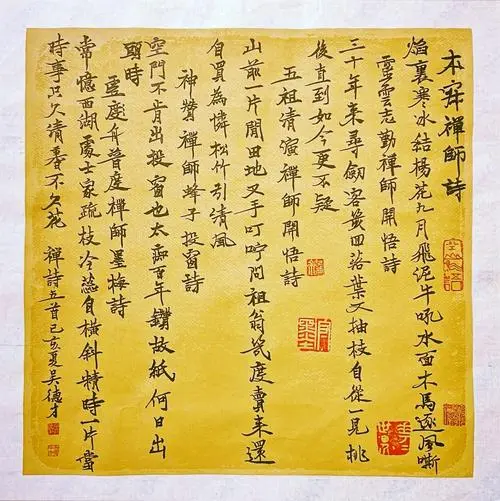 本寂禪師詩
焰裏寒冰結楊花九月飛泥牛吼水面木馬逐風嘶
靈雲志勤禪師開悟詩
三十年来尋劍客幾回落葉又抽枝自從一見桃
後直到如今更不疑
五祖清演禪師開悟詩
山前一片閒田地叉手叮嚀問祖翁幾度賣来還
自買為憐松竹引清風
神贊禪師蜂子投窗詩
空門不肯出投窗也太癡百年鑽故紙何日出
頭時
虛度舟普度禪師墨梅詩
常憶西湖處士家疏枝冷蕊自橫斜精時一片當
時事只欠清香不欠花 禪詩五首己亥夏吳德才